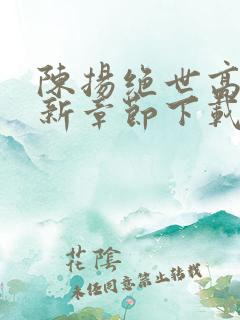 陳揚絕世高
新章節下載
花陰
未經同意禁止轉載